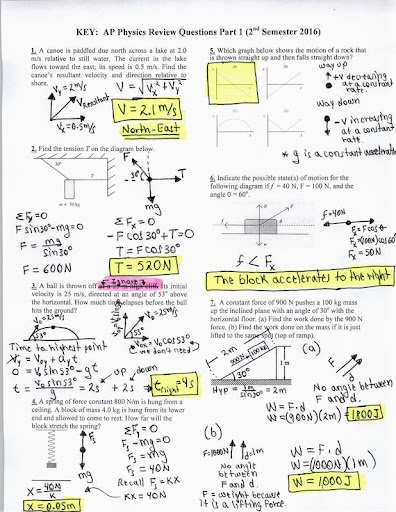 KEY: AP Physics Review Questions Part 1 (2nd Semester 2016)
1. A canoe is paddled due north across a lake at 2.0
m/s relative to still water. The current in the lake
flows toward the east; its speed is 0.5 m/s. Find the
canoe's resultant velocity and direction relative to
shore.
Vy = 2 m/s
V resultant
Vx = 0.5 m/s
V = √Vx² + Vy²
V = 2.1 m/s
North-East
2. Find the tension T on the diagram below.
30°
T
m = 30 kg
F
30°
T
mg
ΣFy = 0
F sin30° - mg = 0
F = mg / sin30°
F = 600N
ΣFx = 0
-F cos30° + T = 0
T = F cos30°
T = 520N
Ignore
3. A ball is thrown off its initial
velocity is 25 m/s, directed at an angle of 53° above the
horizontal. How much time elapses before the ball
hits the ground?
53°
V0 = 25 m/s
V0 cos53°
we don't need
Time to highest point
Vy = V0y + ayt
0 = V0 sin53° - gt
t = V0 sin53° / g = 2s
up down
2s + 2s
t flight = 4s
4. A spring of force constant 800 N/m is hung from a
ceiling. A block of mass 4.0 kg is hung from its lower
end and allowed to come to rest. How far will the
block stretch the spring?
Fs
mg
ΣFy = 0
Fs - mg = 0
Fs = mg
Fs = 40N
Recall Fs = KX
KX = 40N
X = 40N / K
X = 0.05m
5. Which graph below shows the motion of a rock that
is thrown straight up and then falls straight down?
way up
+v decreasing
at a constant
rate.
way down
-v increasing
at a constant
rate.
* g is a constant acceleration
6. Indicate the possible state(s) of motion for the
following diagram if f = 40 N, F = 100 N, and the
angle θ = 60°.
f = 40N
Fx = F cos θ
Fx = (100N)cos60°
Fx = 50N
f < Fx
The block accelerates to the right
7. A constant force of 900 N pushes a 100 kg mass
up the inclined plane with an angle of 30° with the
horizontal floor. (a) Find the work done by the 900 N
force. (b) Find the work done on the mass if it is just
lifted to the same spot (top of ramp).
2m
900N
100 kg
30°
1m
Hyp = 1m / sin30° = 2m
(a)
No angle between
F and d.
W = F·d
W = (900N)(2m) = 1800J
(b)
F = 1000N
d = 1m
No angle
between
F and d.
F = weight because
it is a lifting force.
W = F·d
W = (1000N)(1m)
W = 1000J